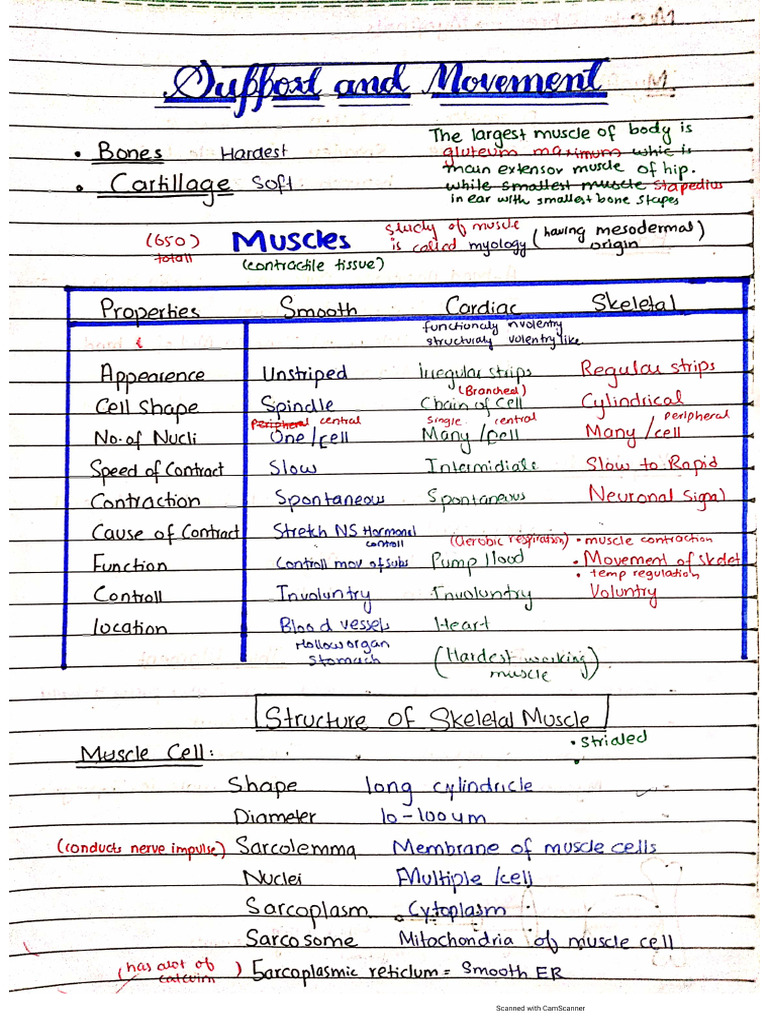 Support and Movement
• Bones Hardest
• Cartillage Soft
The largest muscle of body is
gluteum maximum whic is
main extensor muscle of hip.
while smallest muscle stapedius
in ear with smallest bone stapes
(650)
totall
Muscles
(contractile tissue)
study of muscle
is called myology (having mesodermal)
origin
Properties Smooth Cardiac Skeletal
functionaly nvolentry
structuraly volentry like
Appearence Unstriped Irregular strips Regular strips
(Branched)
Cell Shape Spindle Chain of Cell Cylindrical
peripheral central single central peripheral
No. of Nucli One/cell Many/cell Many/cell
Speed of Contract Slow Intermidiate Slow to Rapid
Contraction Spontaneous Spontaneous Neuronal Signal
Cause of Contract Stretch NS Hormonal
controll
(Aerobic respiration) • muscle contraction
Function Controll mov of subs Pump blood • Movement of skelet
• temp regulation
Controll Involuntry Involuntry Voluntry
location Blood vessels Heart
Hollow organ
Stomach
(Hardest working)
muscle
Structure of Skeletal Muscle
• Striated
Muscle Cell:
Shape long cylindricle
Diameter 10-100um
(conducts nerve impulse) Sarcolemma Membrane of muscle cells
Nuclei Multiple/cell
Sarcoplasm Cytoplasm
Sarcosome Mitochondria of muscle cell
(has alot of
calcuim)
Sarcoplasmic reticlum = Smooth ER
Scanned with CamScanner